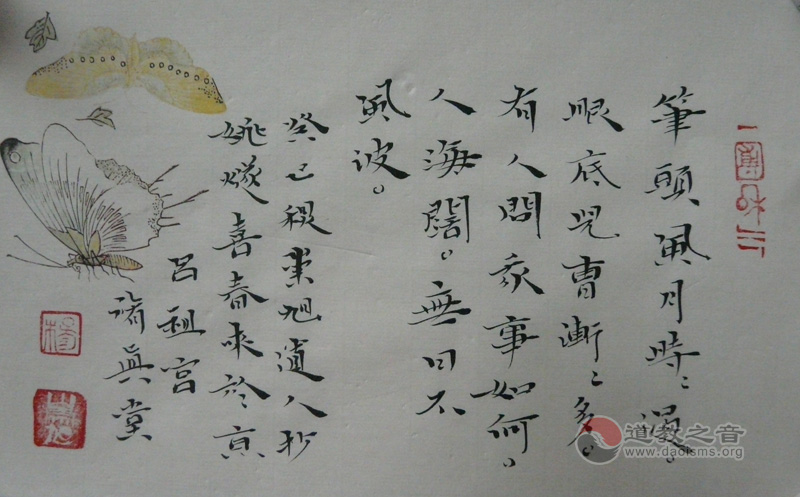 筆頭風月時〻過。
眼底兒曹漸〻多。
有人問我事如何。
人海闊。無日不
風波。
癸巳旭道人抄
姚燧喜春來於京
呂祖宮
諸眞堂
道教之音
www.daoisms.org